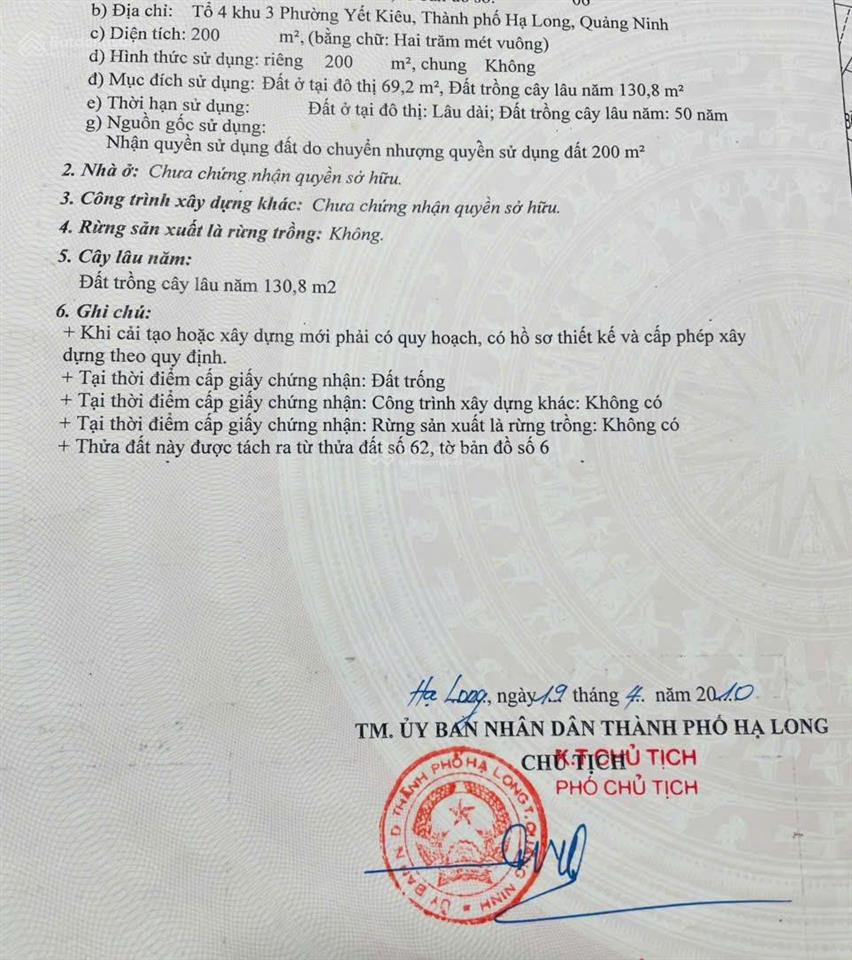 b) Địa chỉ: Tổ 4 khu 3 Phường Yết Kiêu, Thành phố Hạ Long, Quảng Ninh
c) Diện tích: 200 m², (bằng chữ: Hai trăm mét vuông)
d) Hình thức sử dụng: riêng 200 m², chung Không
đ) Mục đích sử dụng: Đất ở tại đô thị 69,2 m², Đất trồng cây lâu năm 130,8 m²
e) Thời hạn sử dụng: Đất ở tại đô thị: Lâu dài; Đất trồng cây lâu năm: 50 năm
g) Nguồn gốc sử dụng:
Nhận quyền sử dụng đất do chuyển nhượng quyền sử dụng đất 200 m²
2. Nhà ở: Chưa chứng nhận quyền sở hữu.
3. Công trình xây dựng khác: Chưa chứng nhận quyền sở hữu.
4. Rừng sản xuất là rừng trồng: Không.
5. Cây lâu năm:
Đất trồng cây lâu năm 130,8 m2
6. Ghi chú:
+ Khi cải tạo hoặc xây dựng mới phải có quy hoạch, có hồ sơ thiết kế và cấp phép xây
dựng theo quy định.
+ Tại thời điểm cấp giấy chứng nhận: Đất trống
+ Tại thời điểm cấp giấy chứng nhận: Công trình xây dựng khác: Không có
+ Tại thời điểm cấp giấy chứng nhận: Rừng sản xuất là rừng trồng: Không có
+ Thửa đất này được tách ra từ thửa đất số 62, tờ bản đồ số 6
Hạ Long, ngày 19 tháng 4 năm 2010
TM. ỦY BAN NHÂN DÂN THÀNH PHỐ HẠ LONG
CHỦ TỊCH
K.T CHỦ TỊCH
PHÓ CHỦ TỊCH
ỦY BAN N D THÀNH PHỐ HẠ LONG T. QUẢNG NINH